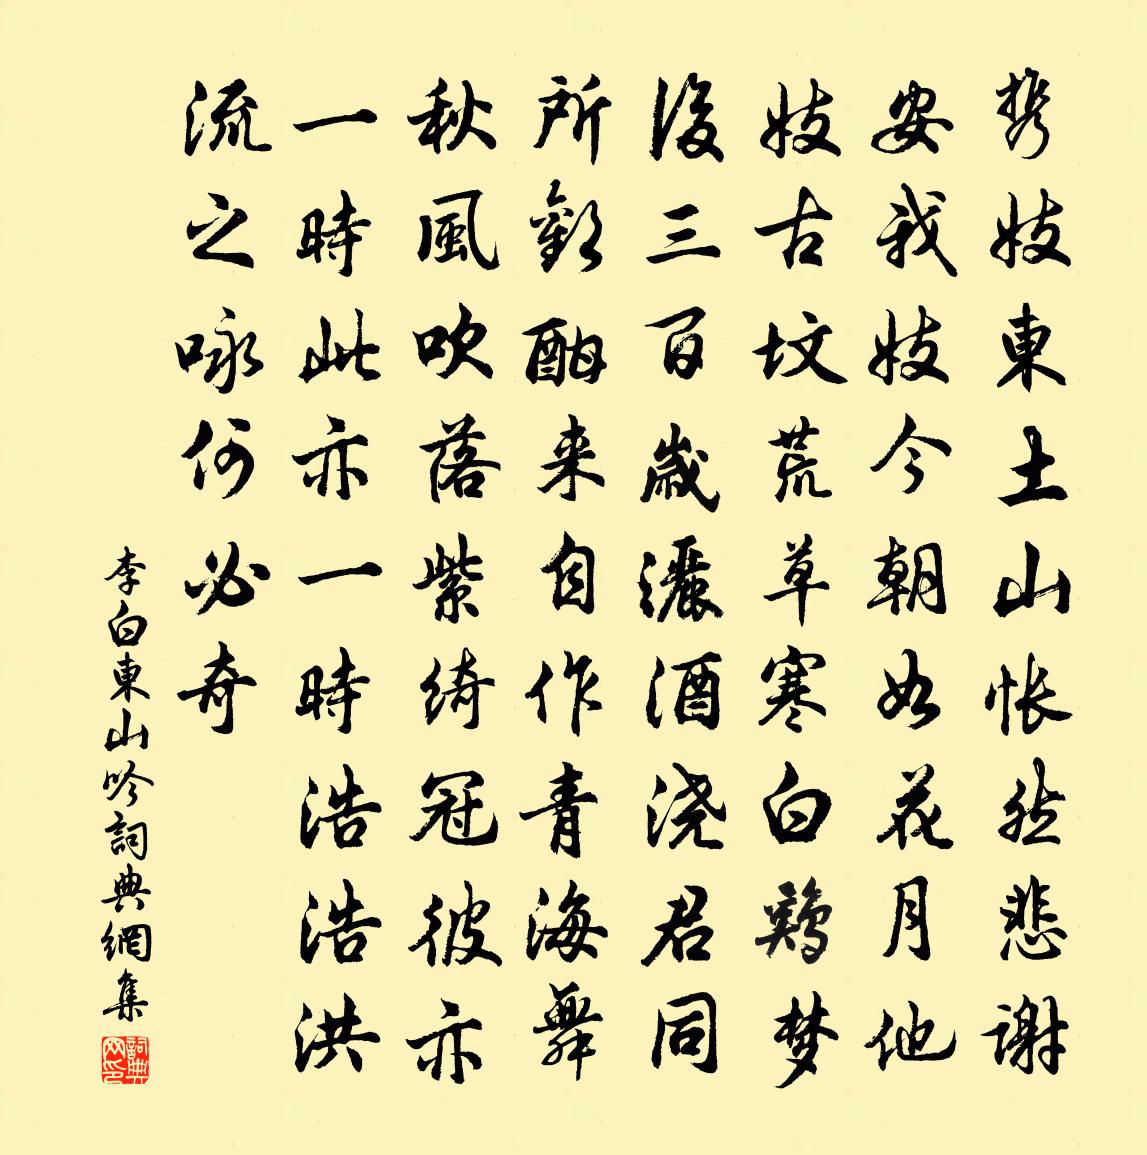 携妓東土山悵然悲謝
安我妓今朝如花月他
妓古坟荒草寒白鷄梦
後三百歲灑酒浇君同
所歡酣来自作青海舞
秋風吹落紫綺冠彼亦
一時此亦一時浩浩洪
流之咏何必奇
李白東山吟詞典網集
詞典网印